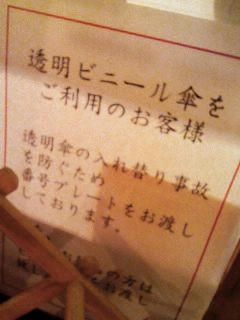 透明ビニール傘を
ご利用のお客様
透明傘の入れ替り事故
を防ぐため
番号プレートをお渡し
しております。
の方は
お渡し